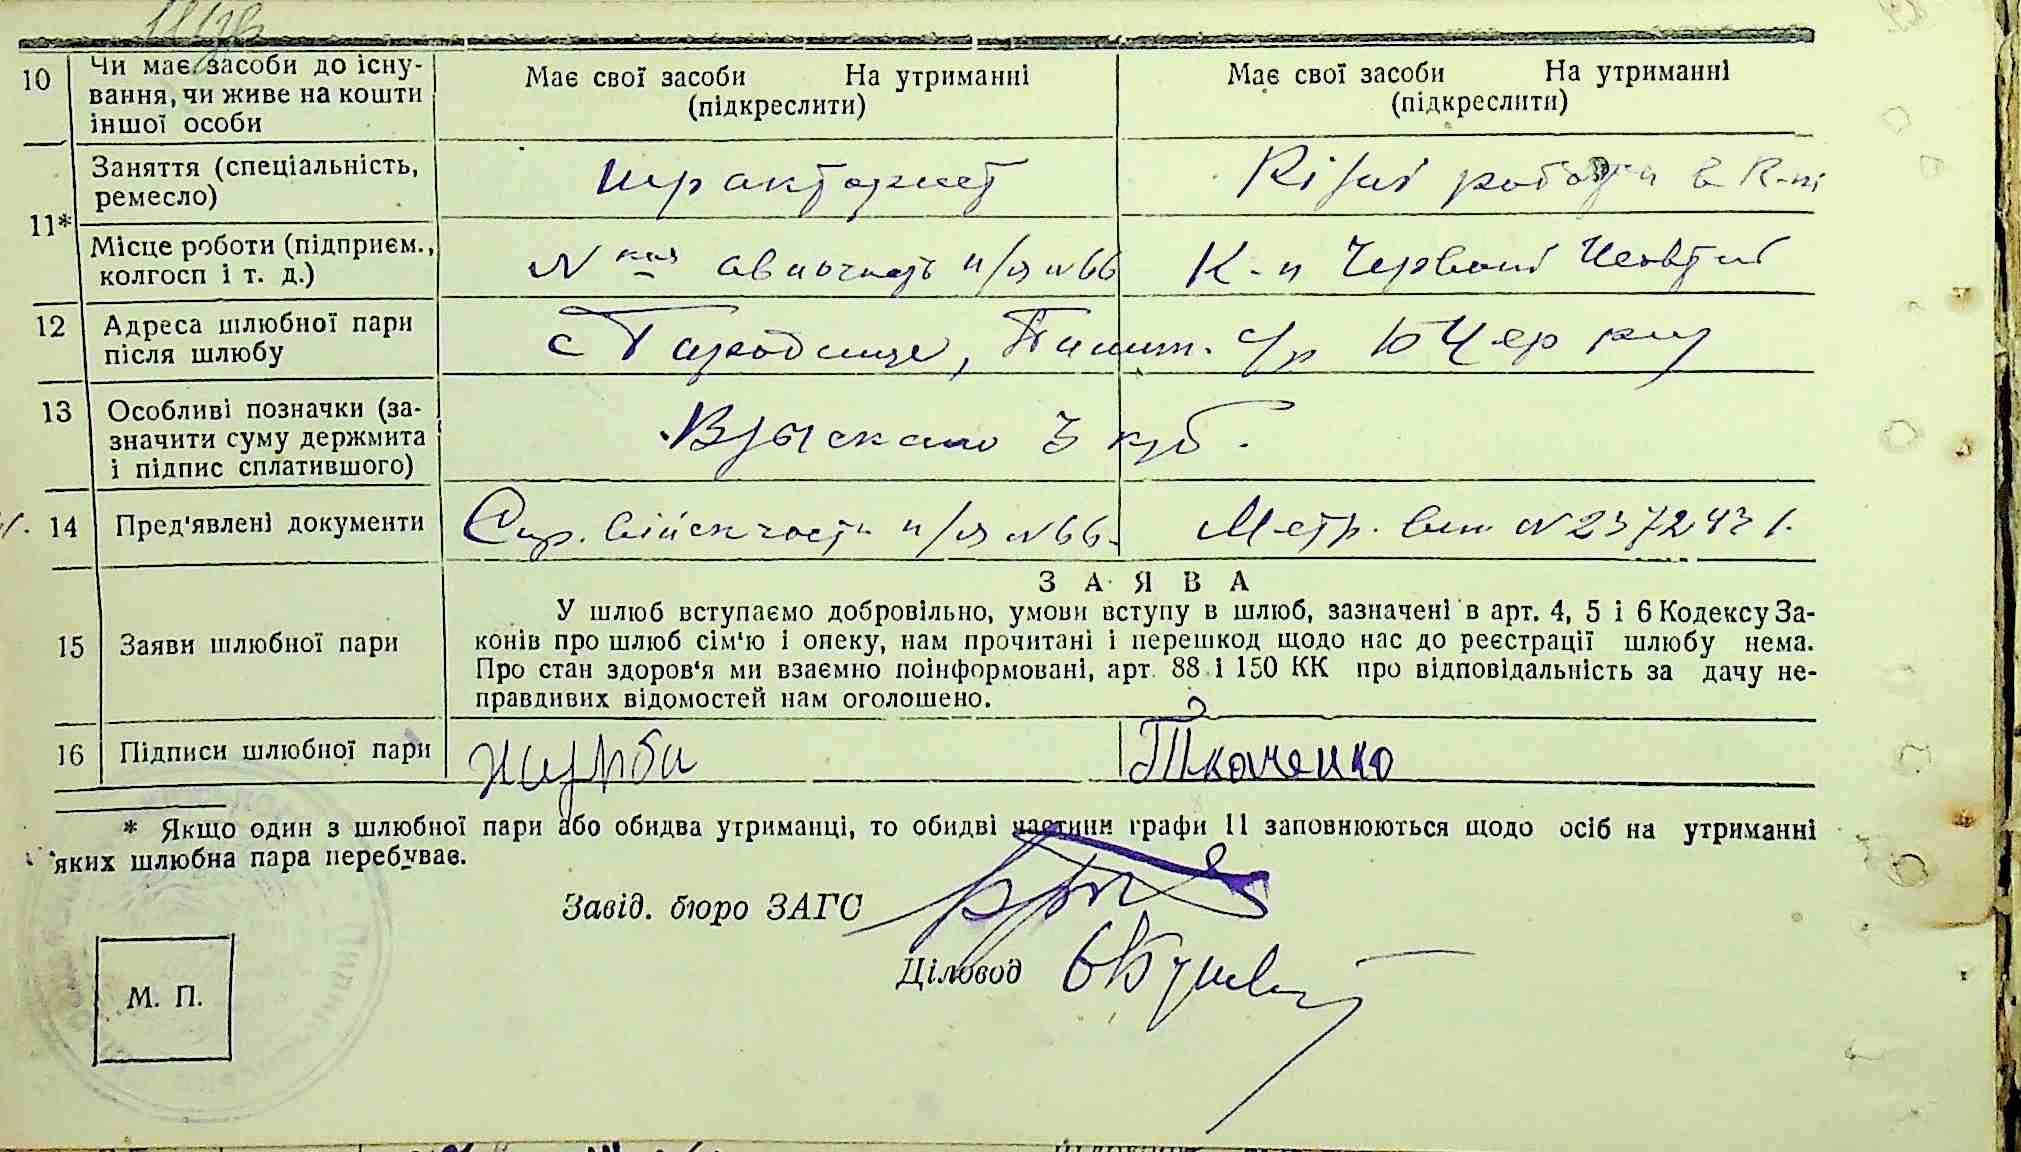 10 Чи має засоби до існу-
вання, чи живе на кошти
іншої особи
Має свої засоби На утриманні
(підкреслити)
Має свої засоби На утриманні
(підкреслити)
11*
Заняття (спеціальність,
ремесло)
тракторист
Різні роботи в к-пі
Місце роботи (підприєм.,
колгосп і т. д.)
п/я №66
К-п Червоний
12 Адреса шлюбної пари
після шлюбу
с Городище,
13 Особливі позначки (за-
значити суму держмита
і підпис сплатившого)
Взыскано 3 крб.
14 Пред'явлені документи
Спр. війск части п/я №66.
Метр. вип №2372431.
15 Заяви шлюбної пари
ЗАЯВА
У шлюб вступаємо добровільно, умови вступу в шлюб, зазначені в арт. 4, 5 і 6 Кодексу За-
конів про шлюб сім'ю і опеку, нам прочитані і перешкод щодо нас до реєстрації шлюбу нема.
Про стан здоров'я ми взаємно поінформовані, арт. 88 і 150 КК про відповідальність за дачу не-
правдивих відомостей нам оголошено.
16 Підписи шлюбної пари
Журба
Ткаченко
* Якщо один з шлюбної пари або обидва утриманці, то обидві частини графи 11 заповнюються щодо осіб на утриманні
яких шлюбна пара перебуває.
Завід. бюро ЗАГС
Діловод
М. П.